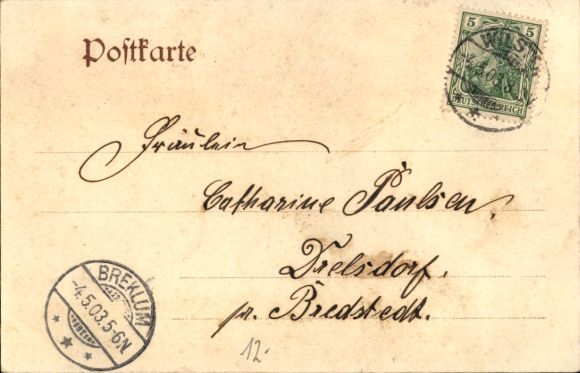 Postkarte
5 5
DEUTSCHES REICH
WILST
4.5.03.
Fräulein
Catharine Paulsen.
Drelsdorf.
pr. Bredstedt.
BREKLUM
-4.5.03.5-6N
12.-